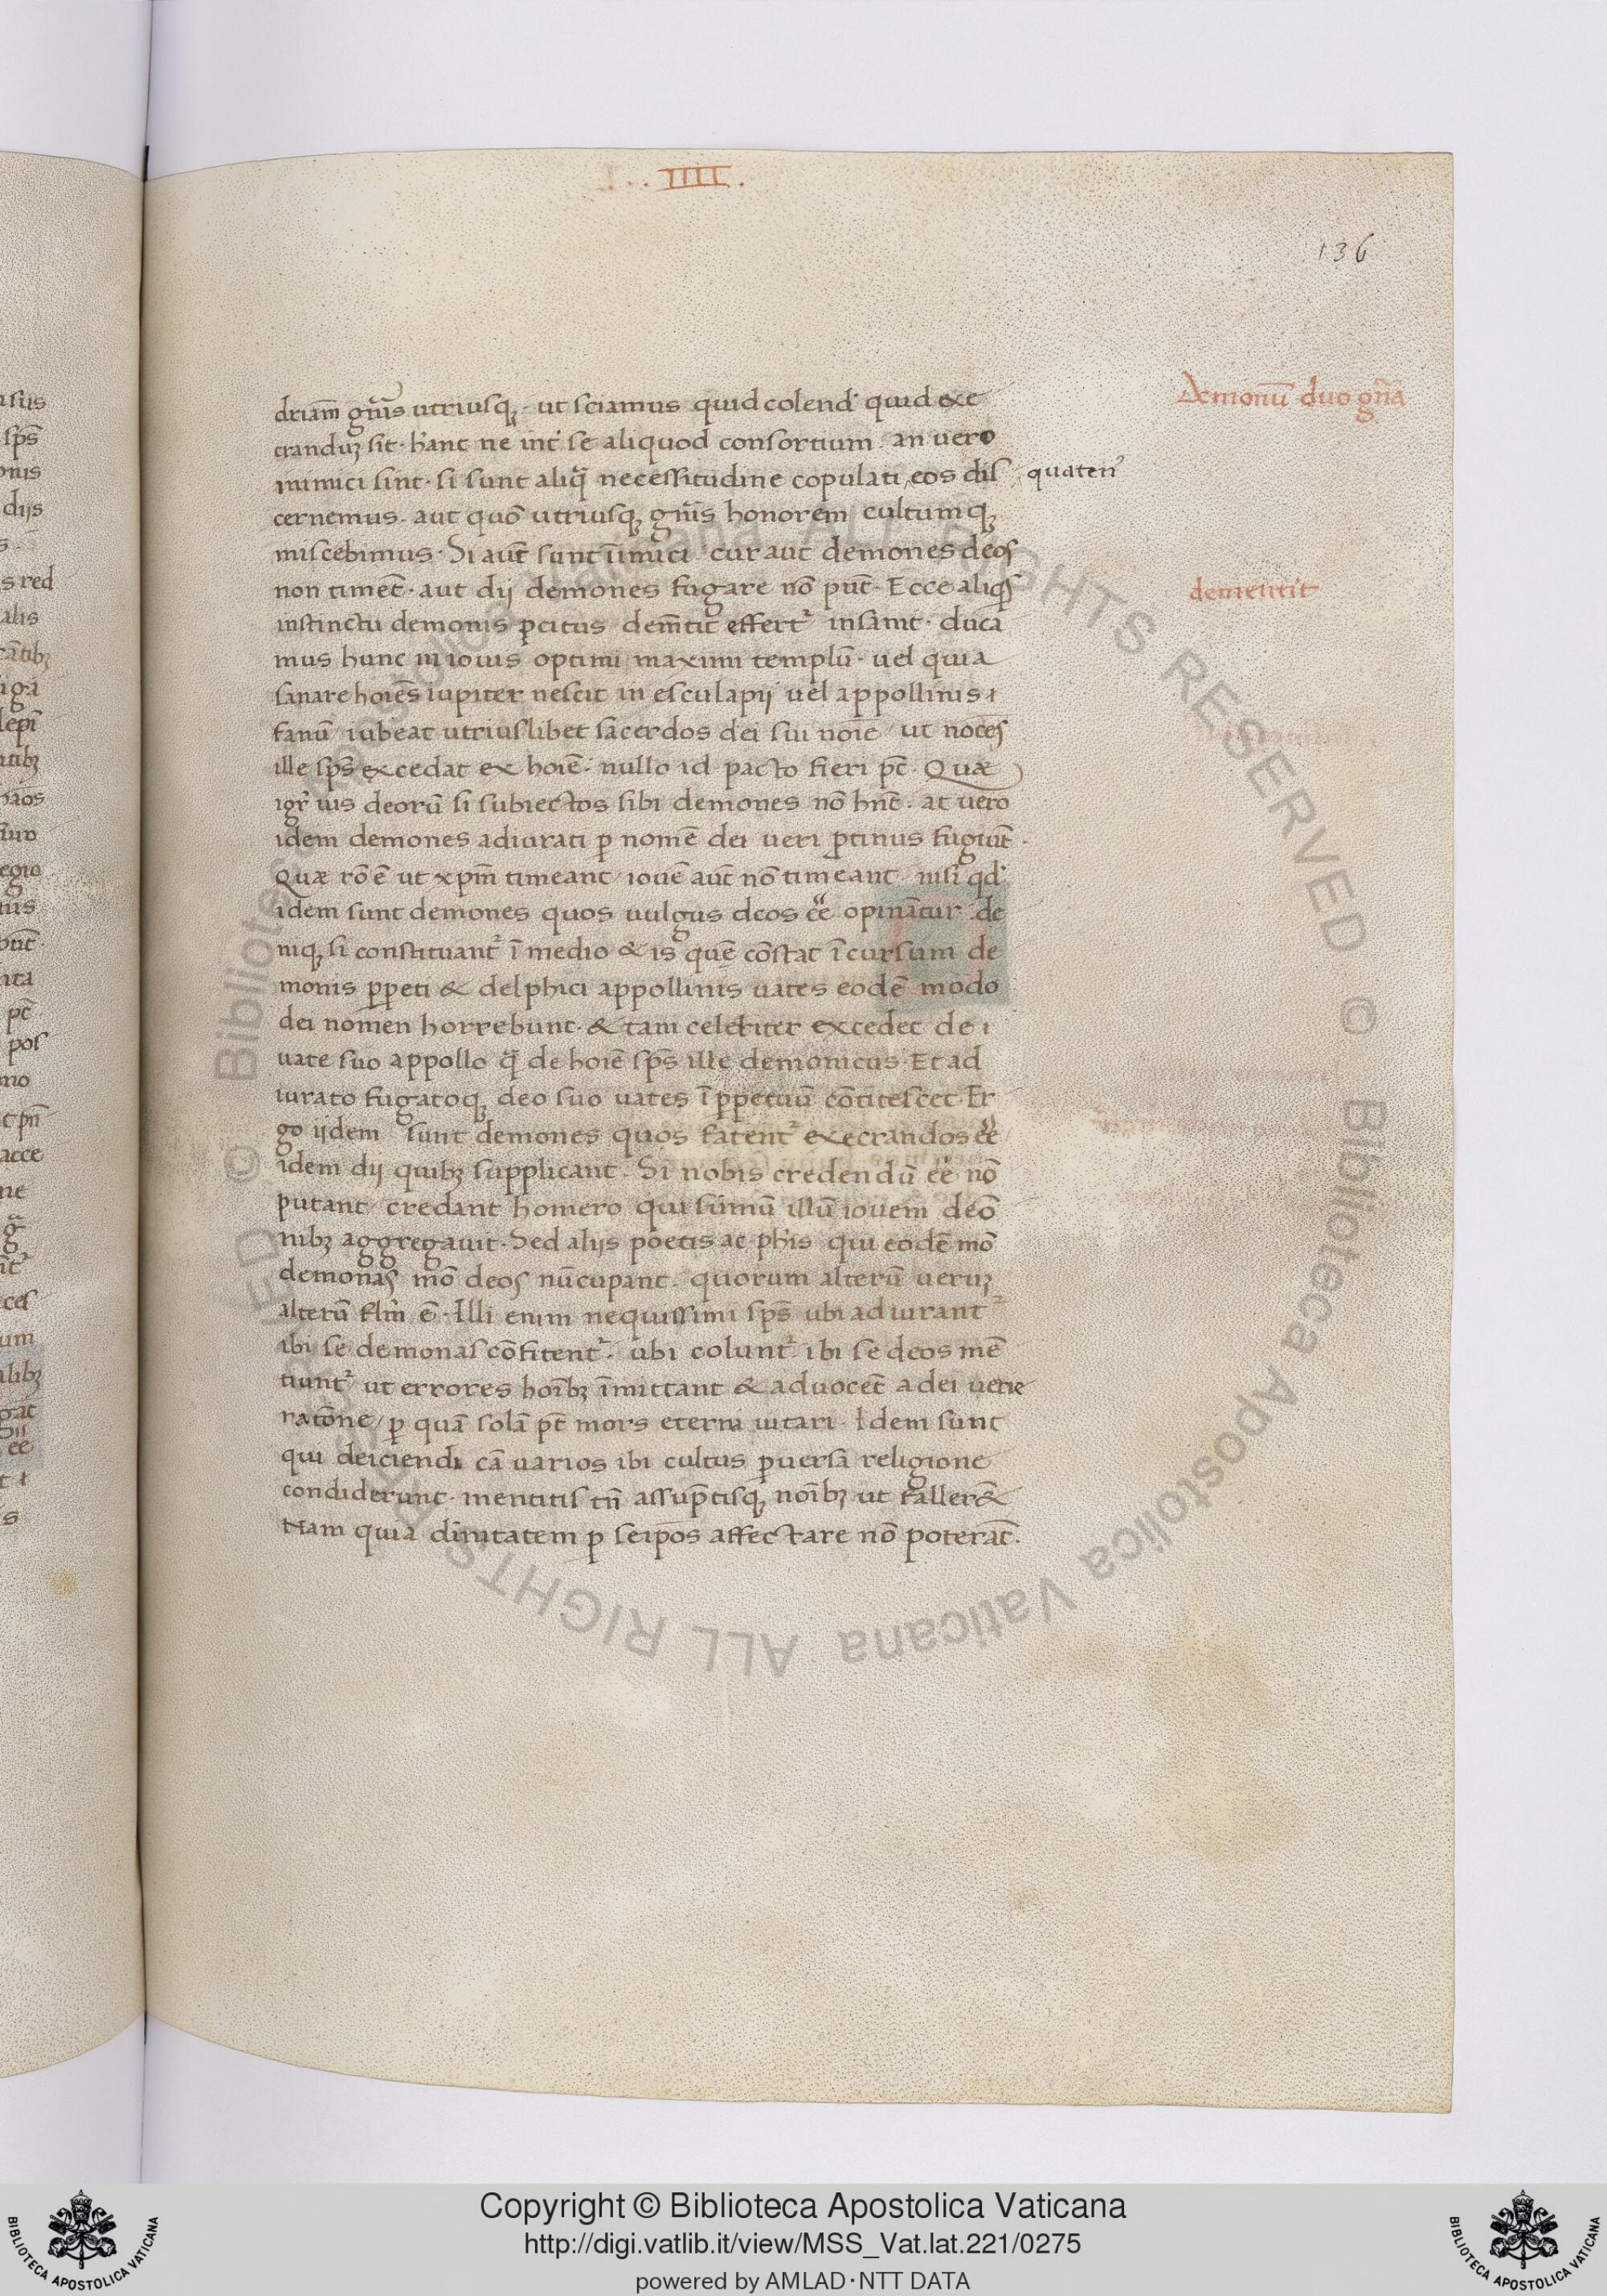 . . IIII .
136
driam̄ gn̄is utriusq; · ut sciamus quid colend' quid exe
Aemonū duo gn̄a
crandūz sit · hanc ne int' se aliquod consortium an vero
inimici sint · si sunt aliq̄ necessitudine copulati, eos dis
quaten'
cernemus · aut quō utriusq; gn̄is honorem cultumq;
miscebimus · Si aut̄ sunt īimici cur aut demones deos
non timēt · aut dij demones fugare nō pn̄t · Ecce aliqs
dementit
instinctu demonis pcitus dem̄tit effert' insanit · duca
mus hunc in iouis optimi maximi templū · uel quia
sanare hoīes iupiter nescit in esculapij uel appollinis
fanū iubeat utriuslibet sacerdos dei sui noīe ut nocēs
ille sps̄ excedat ex hoīe · nullo id pacto fieri pt̄ · Quæ
igr̄ uis deorū si subiectos sibi demones nō hn̄t · at uero
idem demones adiurati p nomē dei ueri ptinus fugiūt ·
Quæ rō ē ut xpm̄ timeant iouē aut̄ nō timeant nisi qd'
idem sunt demones quos uulgus deos ēē opinātur de
niq; si constituant' ī medio & is quē cōstat īcursum de
monis ppeti & delphici appollinis uates eodē modo
dei nomen horrebunt · & tam celeriter excedet de
uate suo appollo q̄ de hoīe sps̄ ille demonicus · Et ad
iurato fugatoq; deo suo uates ī ppetuū cōticescet · Er
go ijdem sunt demones quos fatent' execrandos ēē
idem dij quibz supplicant · Si nobis credendū ēē nō
putant credant homero qui sūmū illū iouem deō
nibz aggregauit · Sed alijs poetis ac phīs qui eodē mō
demonas mō deos nūcupant · quorum alterū ueruz
alterū flm̄ ē · Illi enim nequissimi sps̄ ubi adiurant'
ibi se demonas cōfitent' · ubi colunt' ibi se deos mē
tiunt' ut errores hoībz īmittant & aduocēt a dei uene
ratōne / p quā solā pt̄ mors eterna uitari · Idem sunt
qui deiciendi cā uarios ibi cultus puersā religione
condiderunt · mentitis tn̄ assūptisq; noībz ut faller&
Nam quia diuitatem p seipos affectare nō poterāt ·
Copyright © Biblioteca Apostolica Vaticana
http://digi.vatlib.it/view/MSS_Vat.lat.221/0275
powered by AMLAD·NTT DATA